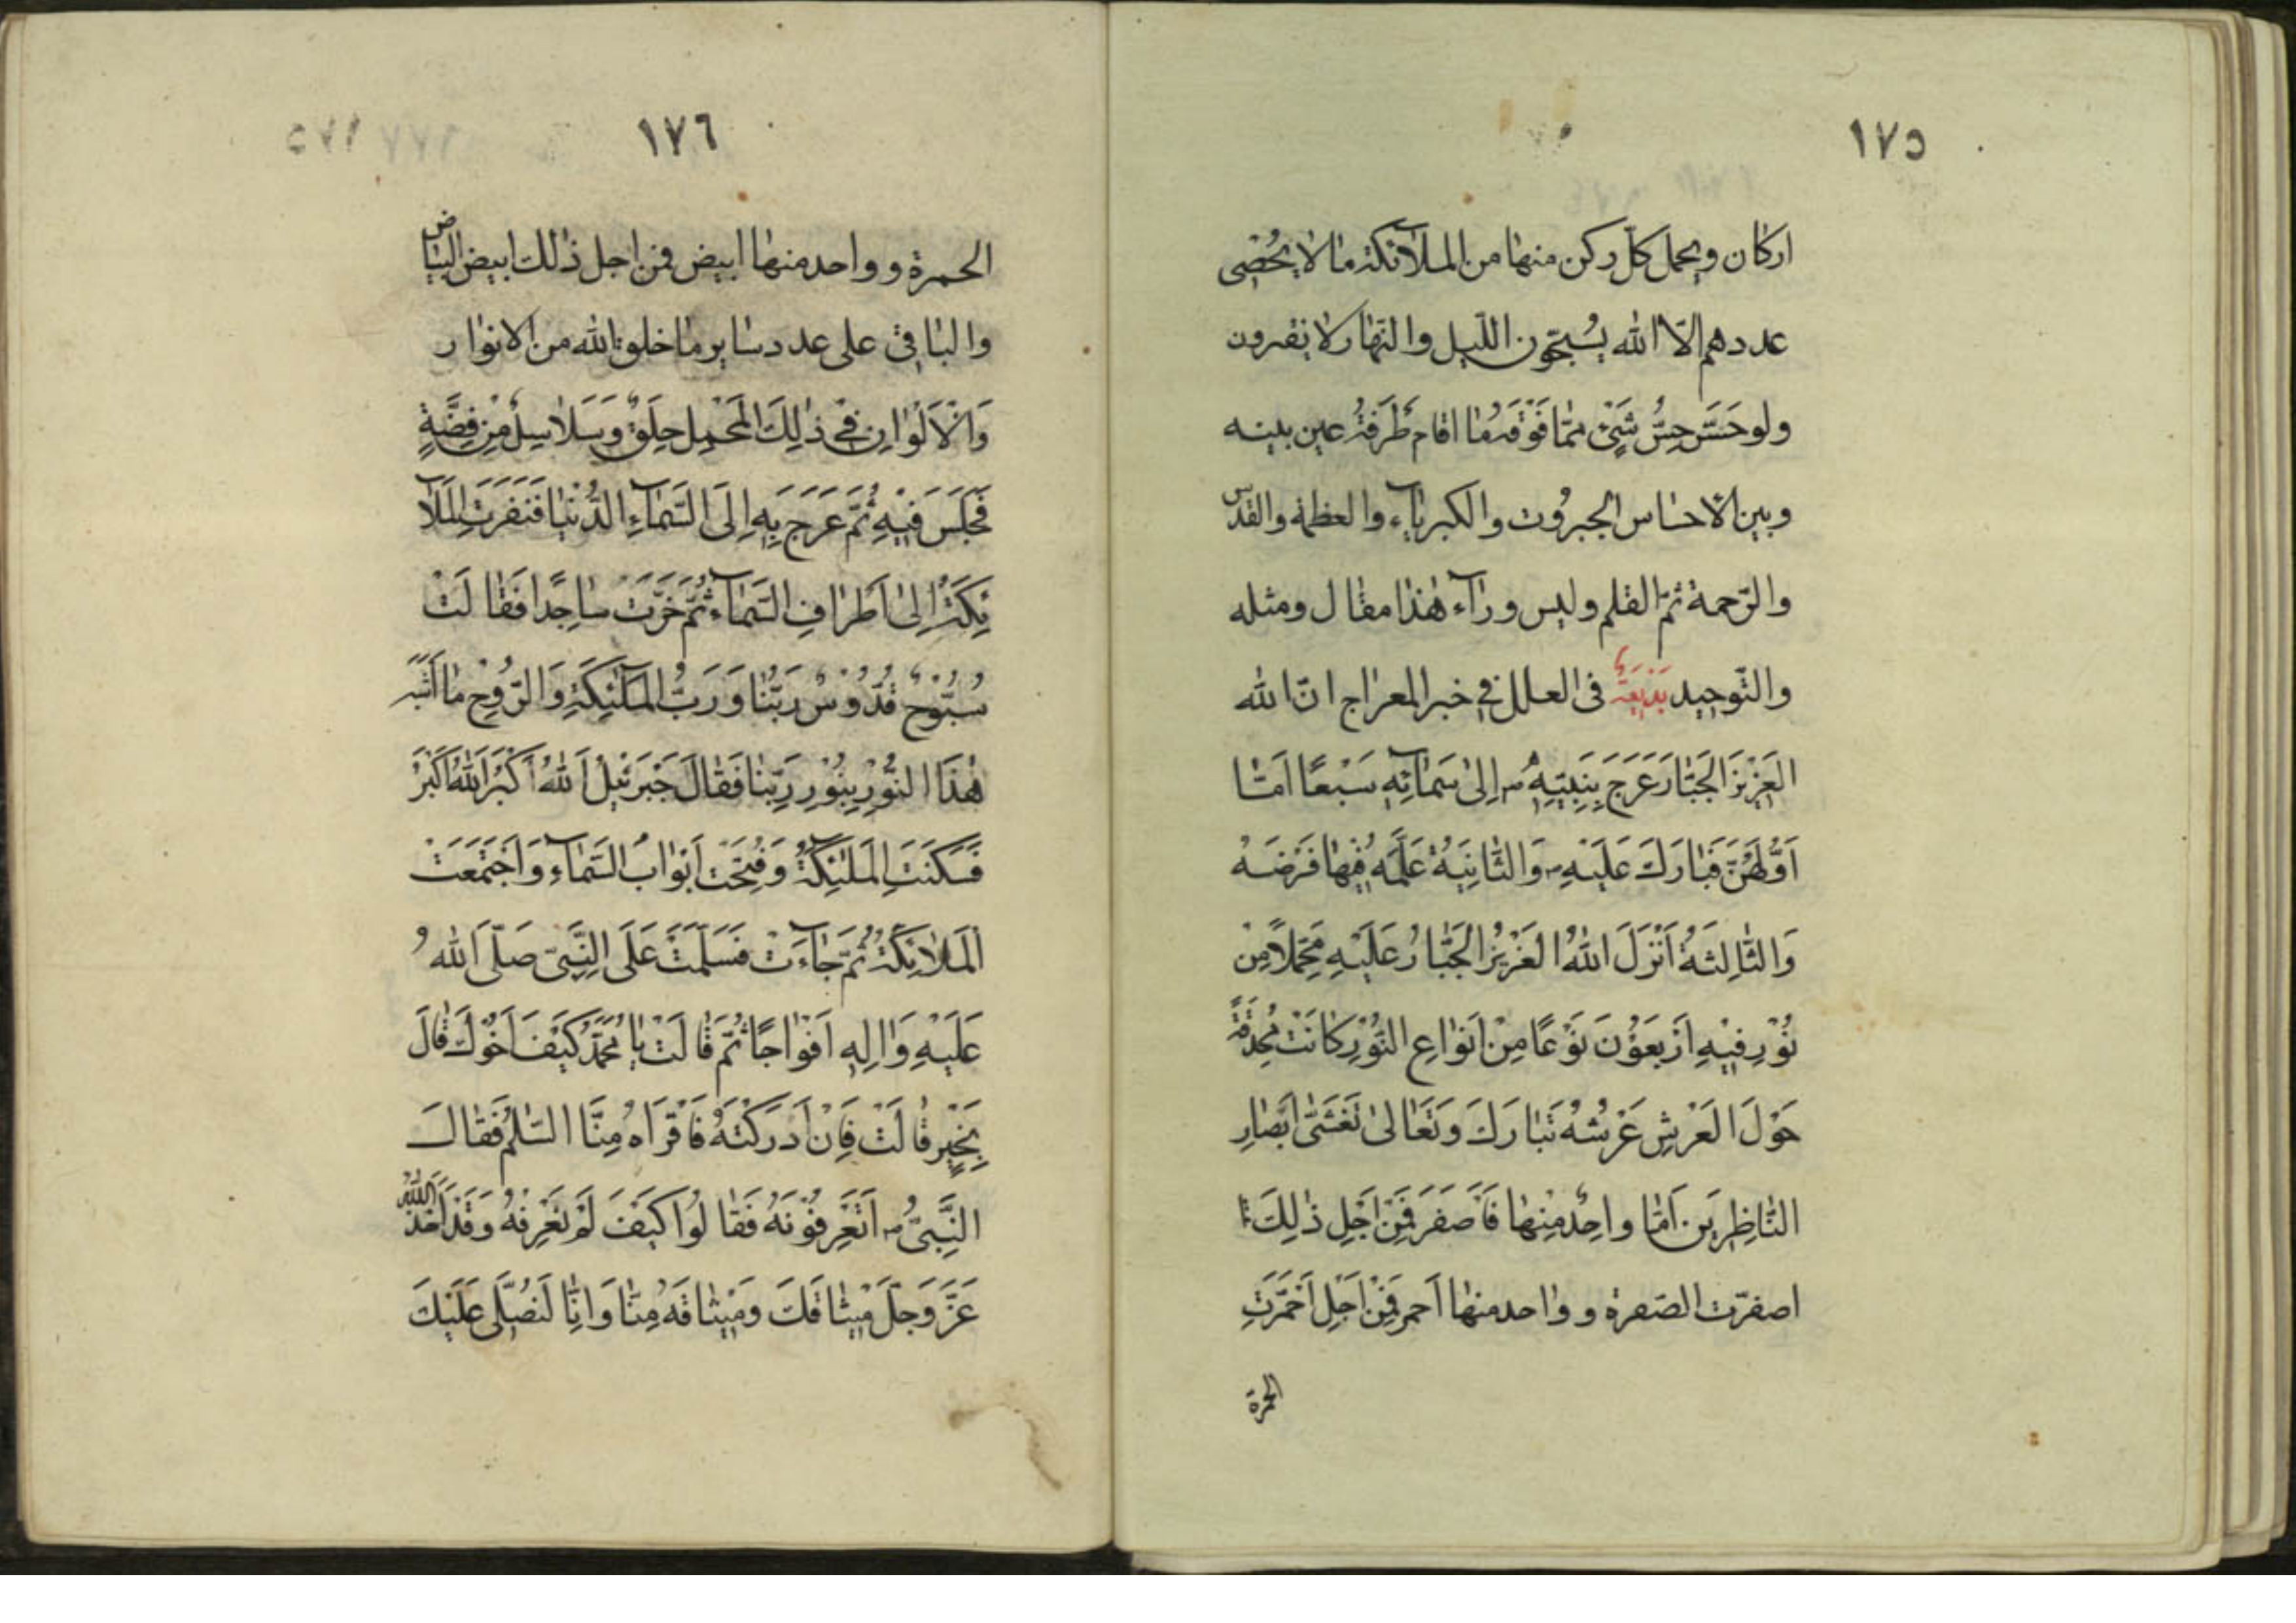 ١٧٥
اركان ويحمل كلّ ركن منها من الملآئكة ما لا يُحْصِى
عددهم الّا الله يُسبّحون الليل والنّهار لا يفترون
ولو حَسَّ حِسُّ شَىْءٍ ممّا فَوْقَه مٰا اقام طَرْفَةَ عين بينه
وبين الاحساس الجبرُوت والكبرياء والعظمة والقدس
والرّحمة ثمّ القلم وليس ورآء هٰذا مقال ومثله
والتّوحيد بَديعَةٌ فى العلل فى خبر المعراج انّ الله
العَزِيْزَ الجَبّارَ عَرَجَ بِنَبِيّهِ ص اِلىٰ سَمٰآئِهِ سَبْعًا اَمّا
اَوَّلهُنَّ فَبٰارَكَ عَلَيْهِ وَالثّانِيَةُ عَلَّمَهُ فيْهٰا فَرْضَهُ
وَالثّالِثَةُ اَنْزَلَ اللهُ العَزِيْزُ الجَبّارُ عَلَيْهِ مَحْمِلاً مِنْ
نُوْرٍ فيْهِ اَرْبَعُوْنَ نَوْعًا مِنْ اَنْواعِ النُّوْرِ كانَتْ مُحْدِقَةً
حَوْلَ العَرْشِ عَرْشُهُ تَبٰارَكَ وَتَعٰالىٰ تَغْشىٰ اَبْصارِ
النّاظِرِيَن اَمّا واحِدٌ مِنْهٰا فَاَصفَر فَمِنْ اَجْلِ ذٰلِكَ
اصفرّت الصّفرة وواحد منها اَحمر فَمِنْ اَجْلِ اَحْمَرّتِ
الحمرة
١٧٦
الحمرة وواحد منها ابيض فمن اجل ذٰلك ابيض البياض
والباقى على عدد ساير ما خلق الله من الانوار
وَالْاَلْوٰانِ فىْ ذٰلِكَ المَحْمِلِ حِلَقٌ وَسَلاسِلُ مِنْ فِضَّةٍ
فَجَلَسَ فيْهِ ثُمَّ عَرَجَ بِهِ اِلَى السَّمآءِ الدُّنْيا فَنَفَرَتِ المَلآ
ئِكَةُ اِلىٰ اَطرٰافِ السَّمآءِ ثُمَّ خَرَّتْ ساجِدًا فَقٰالَتْ
سُبُّوْحٌ قُدُّوْسٌ رَبّنٰا وَرَبُّ المَلٰئِكَةِ وَالرُّوْحِ مٰا اَشْبَهَ
هٰذَا النُّوْرِ بِنُوْرِ رَبّنٰا فَقٰالَ جَبْرَئيْلُ اَللهُ اَكْبَرُ اَللهُ اَكْبَرُ
فَسَكَنَتِ المَلٰئِكَةُ وَفُتِحَتْ اَبْوٰابُ السَّمآءِ وَاجْتَمَعَتْ
اَلمَلائِكَةُ ثُمَّ جٰآءَتْ فَسَلّمَتْ عَلَى النَّبِىّ صَلّى اللهُ
عَلَيْهِ وَالِهِ اَفْوٰاجًا ثُمَّ قالَتْ يٰا مُحَمَّدُ كَيْفَ اَخُوْكَ قالَ
بِخَيْرٍ قٰالَتْ فَاِنْ اَدْرَكْتَهُ فَاقْرَاهُ مِنَّا السَّلٰم فَقٰالَ
النَّبِىُّ ص اَتَعْرِفُوْنَهُ فَقٰالُوا كَيْفَ لَمْ نَعْرِفهُ وَقَدْ اَخَذَ اللهُ
عَزَّ وَجَلَّ مِيْثٰاقَكَ وَمِيْثٰاقَهُ مِنّا وَاِنّا لَنُصَلّى عَلَيْكَ